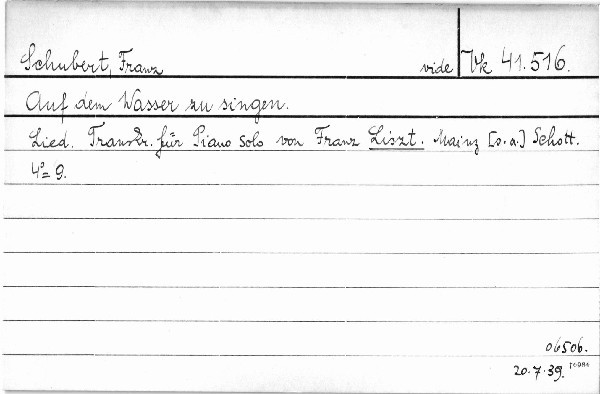 Schubert, Franz vide Vk 41.516.
Auf dem Wasser zu singen.
Lied. Transkr. für Piano Solo von Franz Liszt. Mainz [s.a.] Schott.
4°= 9.
06506.
20.7.39.